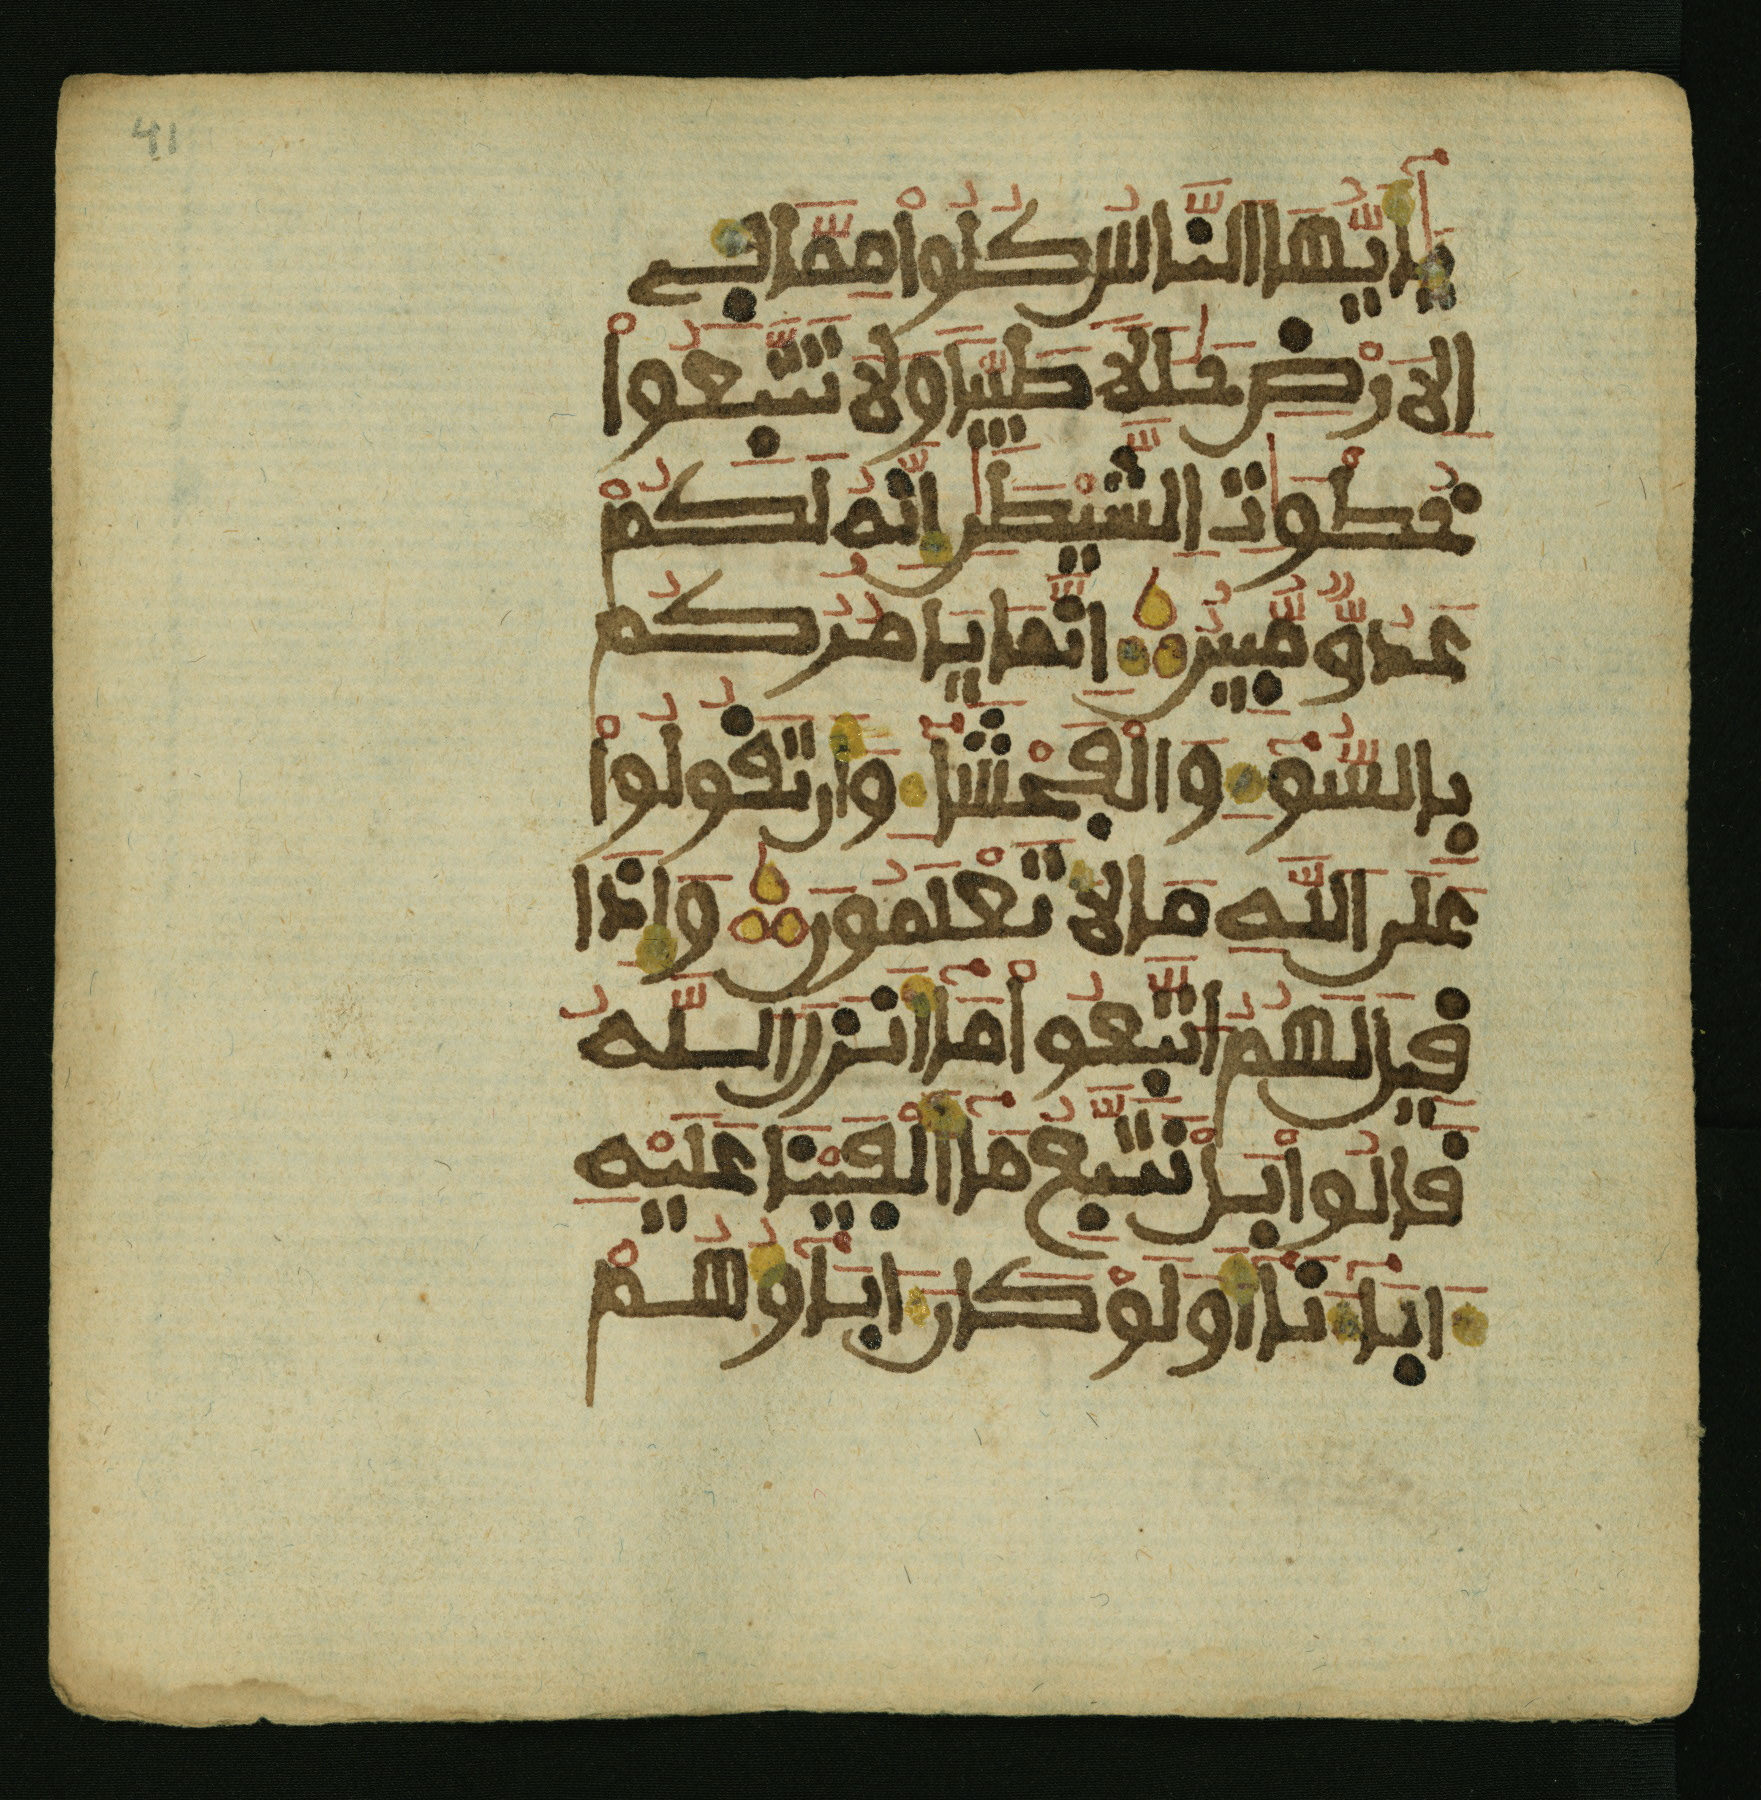 41
يَٰٓأَيُّهَا النَّاسُ كُلُوا۟ مِمَّا فِے
الَارْضِ حَلَٰلًا طَيِّبًا وَلَا تَتَّبِعُوا۟
خُطُوَٰتِ الشَّيْطَٰنِ إِنَّهُۥ لَكُمْ
عَدُوٌّ مُّبِينٌ اِنَّمَا يَامُرُكُم
بِالسُّوٓءِ وَالْفَحْشَآءِ وَأَن تَقُولُوا۟
عَلَى اللَّهِ مَا لَا تَعْلَمُونَ وَإِذَا
قِيلَ لَهُمُ اتَّبِعُوا۟ مَآ أَنزَلَ اللَّهُ
قَالُوا۟ بَلْ نَتَّبِعُ مَآ أَلْفَيْنَا عَلَيْهِ
ءَابَآءَنَآ أَوَلَوْ كَانَ ءَابَآؤُهُمْ